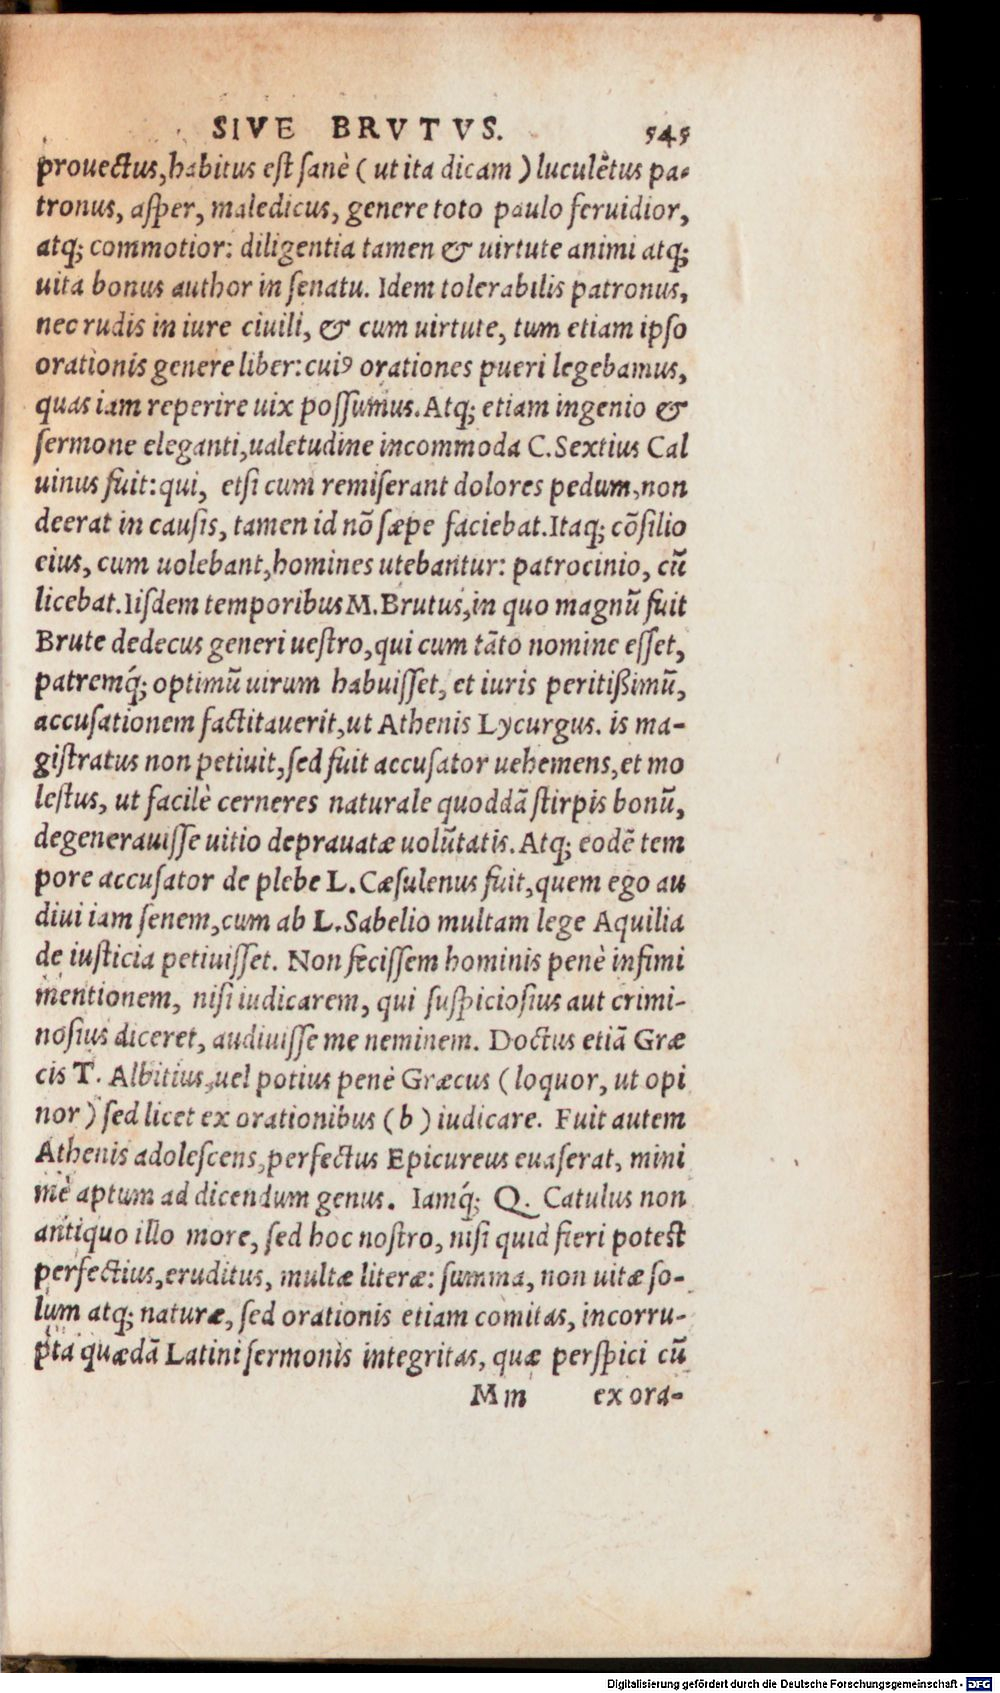 SIVE BRVTVS. 545
prouectus, habitus est sanè ( ut ita dicam ) luculẽtus pa-
tronus, asper, maledicus, genere toto paulo feruidior,
atq; commotior: diligentia tamen & uirtute animi atq;
uita bonus author in senatu. Idem tolerabilis patronus,
nec rudis in iure ciuili, & cum uirtute, tum etiam ipso
orationis genere liber: cuiꝰ orationes pueri legebamus,
quas iam reperire uix possumus. Atq; etiam ingenio &
sermone eleganti, ualetudine incommoda C. Sextius Cal
uinus fuit: qui, etsi cum remiserant dolores pedum, non
deerat in causis, tamen id nõ sæpe faciebat. Itaq; cõsilio
eius, cum uolebant, homines utebantur: patrocinio, cũ
licebat. Iisdem temporibus M. Brutus, in quo magnũ fuit
Brute dedecus generi uestro, qui cum tãto nomine esset,
patremq́; optimũ uirum habuisset, et iuris peritißimũ,
accusationem factitauerit, ut Athenis Lycurgus. is ma-
gistratus non petiuit, sed fuit accusator uehemens, et mo
lestus, ut facilè cerneres naturale quoddã stirpis bonũ,
degenerauisse uitio deprauatæ uolũtatis. Atq; eodẽ tem
pore accusator de plebe L. Cæsulenus fuit, quem ego au
diui iam senem, cum ab L. Sabelio multam lege Aquilia
de iusticia petiuisset. Non fecissem hominis penè infimi
mentionem, nisi iudicarem, qui suspiciosius aut crimi-
nosius diceret, audiuisse me neminem. Doctus etiã Græ
cis T. Albitius, uel potius penè Græcus ( loquor, ut opi
nor ) sed licet ex orationibus ( b ) iudicare. Fuit autem
Athenis adolescens, perfectus Epicureus euaserat, mini
mè aptum ad dicendum genus. Iamq́; Q. Catulus non
antiquo illo more, sed hoc nostro, nisi quid fieri potest
perfectius, eruditus, multæ literæ: summa, non uitæ so-
lum atq; naturæ, sed orationis etiam comitas, incorru-
pta quædã Latini sermonis integritas, quæ perspici cũ
Mm ex ora-
Digitalisierung gefördert durch die Deutsche Forschungsgemeinschaft - DFG